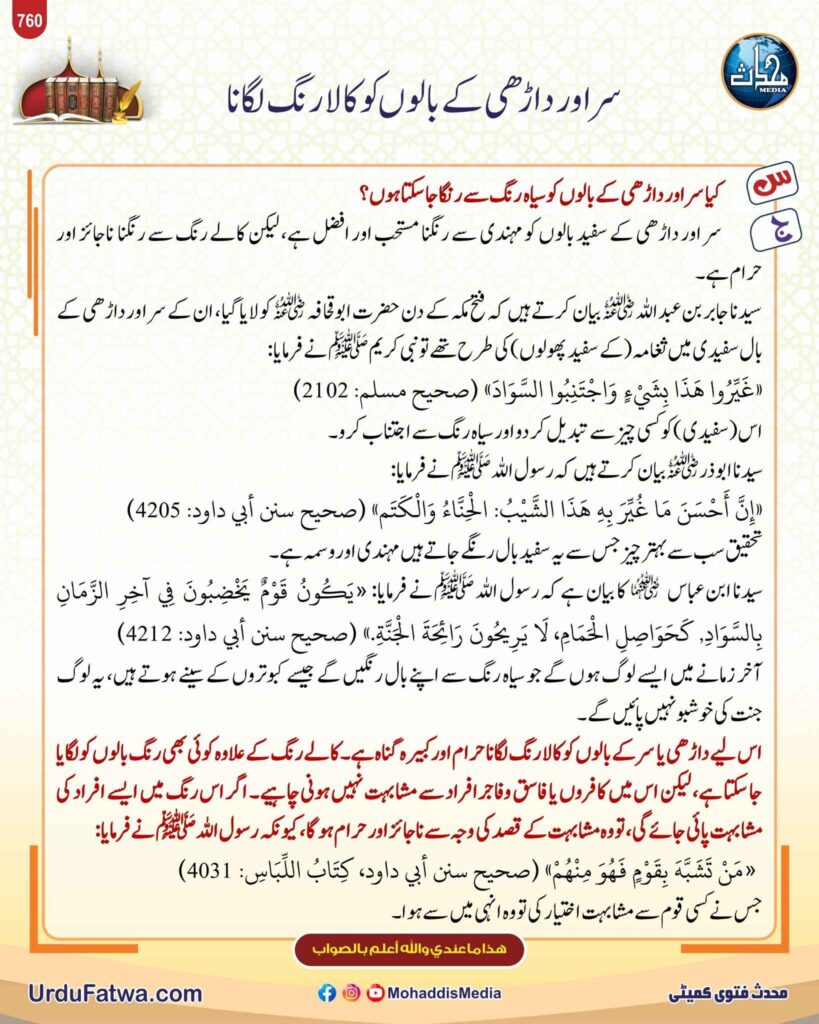 760
محدث
MEDIA
سر اور داڑھی کے بالوں کو کالا رنگ لگانا
س
کیا سر اور داڑھی کے بالوں کو سیاہ رنگ سے رنگا جا سکتا ہوں؟
ج
سر اور داڑھی کے سفید بالوں کو مہندی سے رنگنا مستحب اور افضل ہے، لیکن کالے رنگ سے رنگنا ناجائز اور
حرام ہے۔
سیدنا جابر بن عبد اللہ رضی اللہ عنہ بیان کرتے ہیں کہ فتح مکہ کے دن حضرت ابو قحافہ رضی اللہ عنہ کو لایا گیا، ان کے سر اور داڑھی کے
بال سفیدی میں ثغامہ (کے سفید پھولوں) کی طرح تھے تو نبی کریم ﷺ نے فرمایا:
«غَيِّرُوا هَذَا بِشَيْءٍ وَاجْتَنِبُوا السَّوَادَ» (صحيح مسلم: 2102)
اس (سفیدی) کو کسی چیز سے تبدیل کر دو اور سیاہ رنگ سے اجتناب کرو۔
سیدنا ابوذر رضی اللہ عنہ بیان کرتے ہیں کہ رسول اللہ ﷺ نے فرمایا:
«إِنَّ أَحْسَنَ مَا غُيِّرَ بِهِ هَذَا الشَّيْبُ: الْحِنَّاءُ وَالْكَتَم» (صحيح سنن أبي داود: 4205)
تحقیق سب سے بہتر چیز جس سے یہ سفید بال رنگے جاتے ہیں مہندی اور وسمہ ہے۔
سیدنا ابن عباس رضی اللہ عنہما کا بیان ہے کہ رسول اللہ ﷺ نے فرمایا: «يَكُونُ قَوْمٌ يَخْضِبُونَ فِي آخِرِ الزَّمَانِ
بِالسَّوَادِ, كَحَوَاصِلِ الْحَمَامِ، لَا يَرِيحُونَ رَائِحَةَ الْجَنَّةِ.» (صحيح سنن أبي داود: 4212)
آخر زمانے میں ایسے لوگ ہوں گے جو سیاہ رنگ سے اپنے بال رنگیں گے جیسے کبوتروں کے سینے ہوتے ہیں، یہ لوگ
جنت کی خوشبو نہیں پائیں گے۔
اس لیے داڑھی یا سر کے بالوں کو کالا رنگ لگانا حرام اور کبیرہ گناہ ہے۔ کالے رنگ کے علاوہ کوئی بھی رنگ بالوں کو لگایا
جا سکتا ہے، لیکن اس میں کافروں یا فاسق وفاجر افراد سے مشابہت نہیں ہونی چاہیے۔ اگر اس رنگ میں ایسے افراد کی
مشابہت پائی جائے گی، تو وہ مشابہت کے قصد کی وجہ سے ناجائز اور حرام ہو گا، کیونکہ رسول اللہ ﷺ نے فرمایا:
«مَنْ تَشَبَّهَ بِقَوْمٍ فَهُوَ مِنْهُمْ» (صحيح سنن أبي داود، كِتَابُ اللِّبَاسِ: 4031)
جس نے کسی قوم سے مشابہت اختیار کی تو وہ انہی میں سے ہوا۔
هذا ما عندي والله أعلم بالصواب
UrduFatwa.com
MohaddisMedia
محدث فتوی کمیٹی